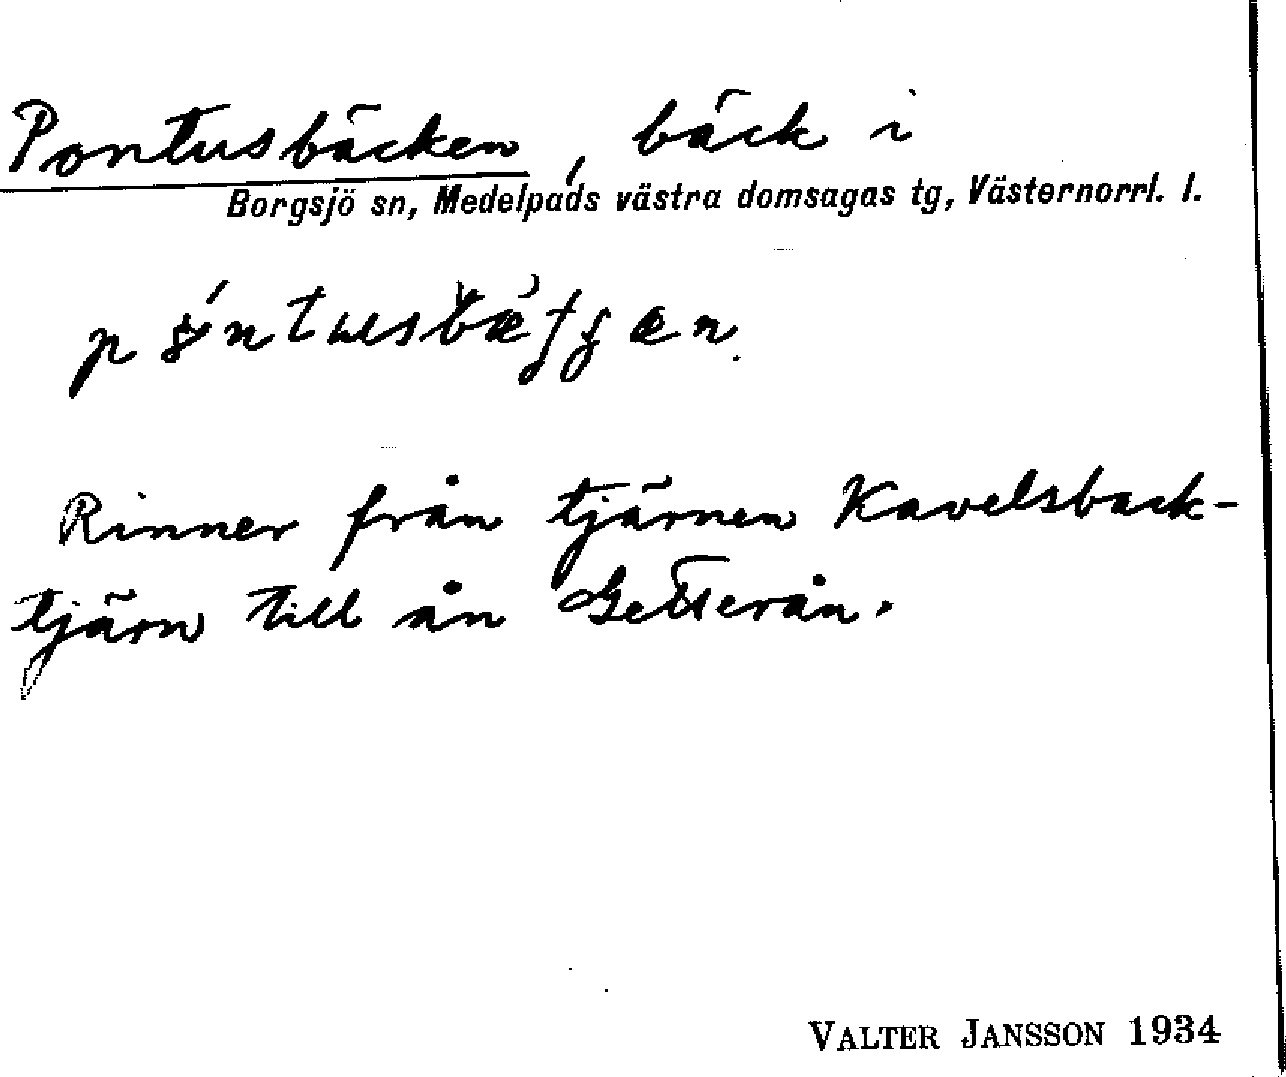 Pontusbäcken, bäck i
Borgsjö sn, Medelpads västra domsagas tg, Västernorrl. l.
Rinner från tjärnen Kavelsback-
tjärn till ån Getterån.
VALTER JANSSON 1934